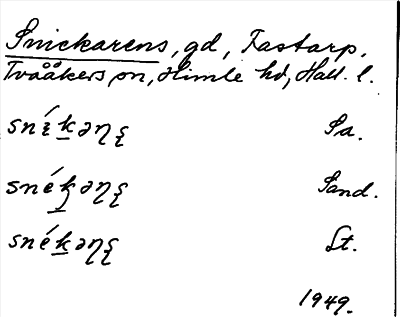 Snickarens, gd, Fastarp,
Tvååkers sn, Himle hd, Hall. l.
snɩ́k̲əŋʂ Sa.
snék̲əŋʂ Sand.
snék̲əŋʂ St.
1949.